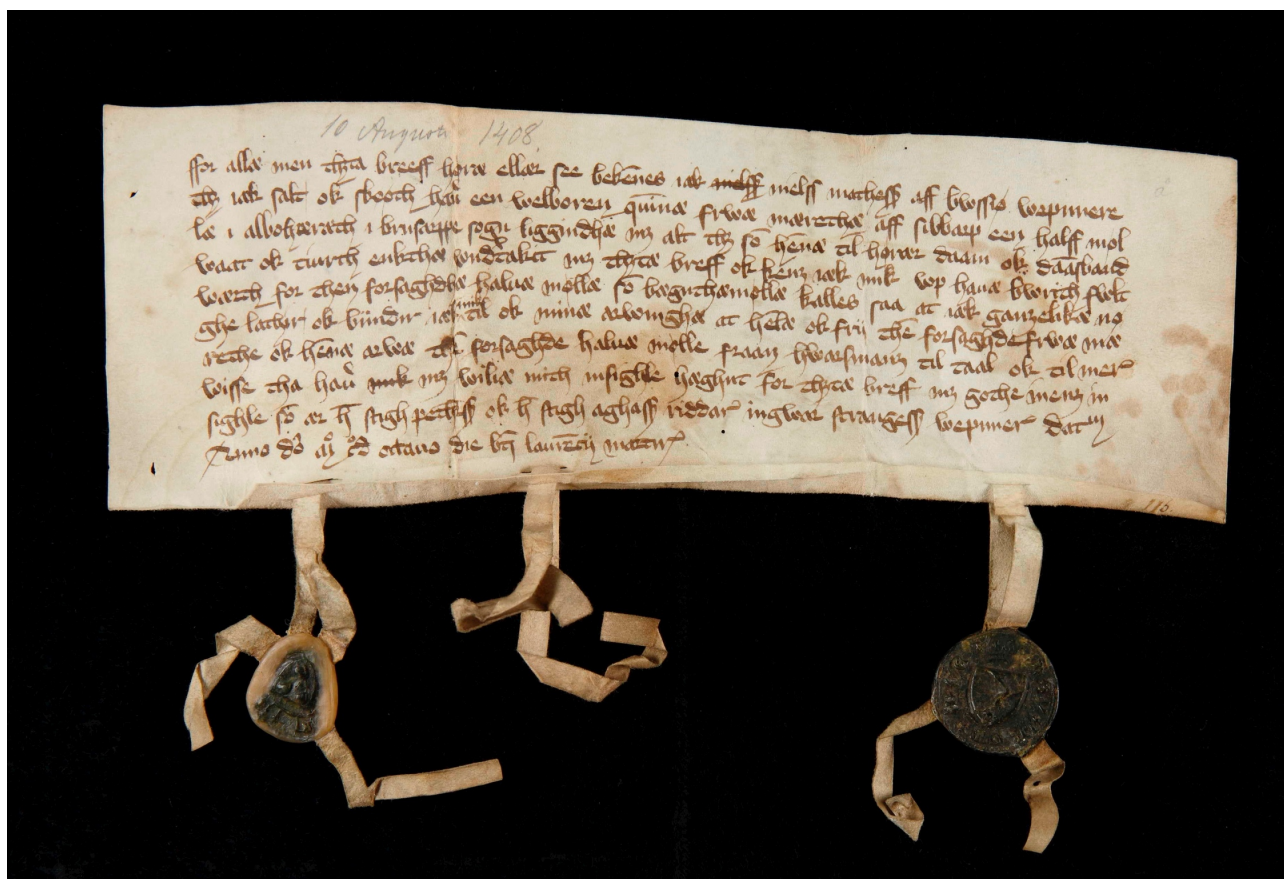 10 Augusti 1408.
ffor allæ men thætta breeff høræ ellær see bekēnes iak nielss mathess aff bwssio wepnnere
th iak salt ok skøøth haū een welboren qūinnæ frwæ mærethæ aff sibbarp een halff møl
læ i albohæreth i brusarppe sogn liggindhæ mz alt th sō hēnæ til hørær daam ok dāasband
waat ok tiurth enkthæ wndtakit mz thættæ breff ok kenz iak mik vp hauæ bwrith fult
wærth for then forsaghdhæ haluæ møllæ sō bægnthæmøllæ kalles saa at iak ganzelikæ nø
ghe later ok bindir iak mik ok minæ ærwinghæ at hēlæ ok fri thē forsaghde frwæ mæ
rethe ok hēnæ arwæ thē forsaghde haluæ mølle fraan hwarsmanz til taal ok til mer
wisse tha haū mz wiliæ mith insighle hæghnt for thættæ breff mz gothe menz in
sighle sō ær h̄ stigh pethss ok h̄ stigh aghass riddar ingwar strangess wepner datm
Anno dō mo cd octauo die bti laurēcij martir
116